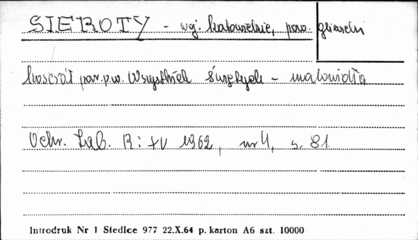 SIEROTY - wg: katowickie, pow. gliwicki
kościół par. p.w. Wszystkich Świętych - malowidła
Ochr. Zab. R: XV 1962, nr 4, s. 81
Introdruk Nr 1 Siedlce 977 22.X.64 p. karton A6 szt. 10000